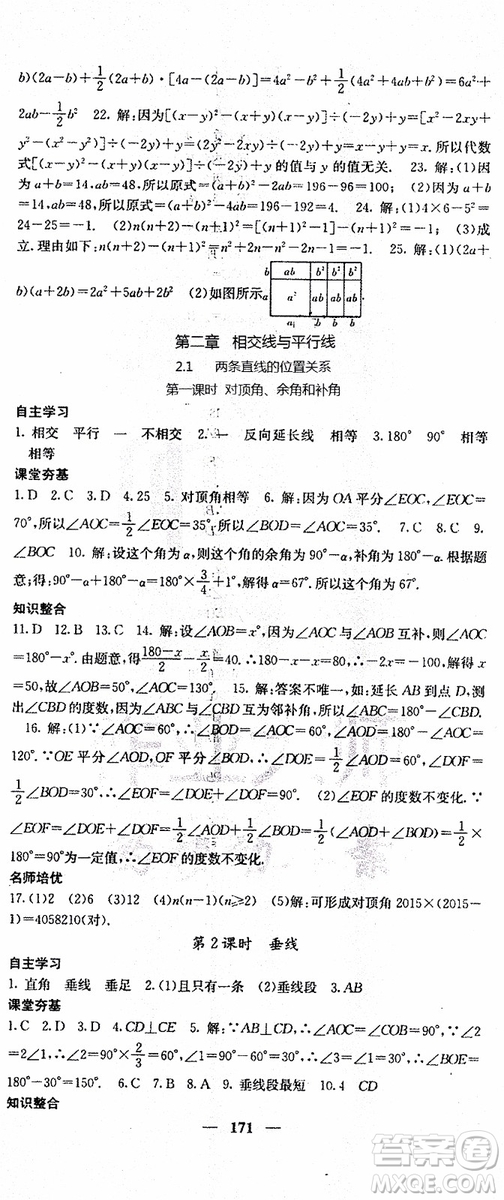 b)(2a-b)+1/2(2a+b)·[4a-(2a-b)]=4a²-b²+1/2(4a²+4ab+b²)=6a²+
2ab-1/2b² 22. 解:因为[(x-y)²-(x+y)(x-y)]÷(-2y)+y=[x²-2xy+
y²-(x²-y²)]÷(-2y)+y=(2y²-2xy)÷(-2y)+y=-y+x+y=x.所以代数
式[(x-y)²-(x+y)(x-y)]÷(-2y)+y的值与y的值无关. 23. 解:(1)因
为a+b=14,ab=48,所以原式=(a+b)²-2ab=196-96=100; (2)因为a+b
=14,ab=48,所以原式=(a+b)²-4ab=196-192=4. 24. 解:(1)4×6-5²=
24-25=-1. (2)n(n+2)-(n+1)²=-1 (3)成
立.理由如下:n(n+2)-(n+1)²=n²+2n-n²-2n-1=-1. 25. 解:(1)(2a+
b)(a+2b)=2a²+5ab+2b² (2)如图所示
b ab b² b²
a a² ab ab
a b b
第二章 相交线与平行线
2.1 两条直线的位置关系
第一课时 对顶角、余角和补角
自主学习
1. 相交 平行 一 不相交 2. 一 反向延长线 相等 3. 180° 90° 相等
相等
课堂夯基
1. D 2. C 3. D 4. 25 5. 对顶角相等 6. 解:因为OA平分∠EOC,∠EOC=
70°,所以∠AOC=1/2∠EOC=35°,所以∠BOD=∠AOC=35°. 7. C 8. C 9.
∠BOC 10. 解:设这个角为α,则这个角的余角90°-α,补角为180°-α.根据题
意;得:90°-α+180°-α=180°×3/4+1°,解得:α=67°.故这个角为67°.
知识整合
11. D 12. B 13. C 14. 解:设∠AOB=x°,因为∠AOC与∠AOB互补,则∠AOC
=180°-x°.由题意,得(180-x)/2-x/2=40.所以180-x-x=80,-2x=-100,解得x
=50,故∠AOB=50°,∠AOC=130°. 15. 解:答案不唯一,如:延长AB到点D,测
出∠CBD的度数,因为∠ABC与∠CBD互为邻补角,所以∠ABC=180°-∠CBD.
16. 解:(1)∵∠AOC=60°,∴∠BOD=∠AOC=60°,∠AOD=180°-∠AOC=
120°.∵OE平分∠AOD,OF平分∠BOD,∴∠DOE=1/2∠AOD=60°,∠DOF=
1/2∠BOD=30°,∴∠EOF=∠DOE+∠DOF=90°. (2)∠EOF的度数不变化.
∵∠EOF=∠DOE+∠DOF=1/2∠AOD+1/2∠BOD=1/2(∠AOD+∠BOD)=1/2×
180°=90°为一定值,∴∠EOF的度数不变化.
名师培优
17. (1)2 (2)6 (3)12 (4)n(n-1)(n≥2) (5)解:可形成对顶角2015×(2015-
1)=4058210(对).
第2课时 垂线
自主学习
1. 直角 垂线 垂足 2. (1)且只有一条 (2)垂线段 3. AB
课堂夯基
1. C 2. D 3. D 4. CD⊥CE 5. 解:∵AB⊥CD,∴∠AOC=∠COB=90°,∵∠2
=2∠1,∴∠2=90°×2/3=60°,∴∠1=90°-60°=30°,∵∠1+∠BOE=180°,∴∠BOE=
180°-30°=150°. 6. C 7. B 8. A 9. 垂线段最短 10. 4 CD
知识整合
— 171 —